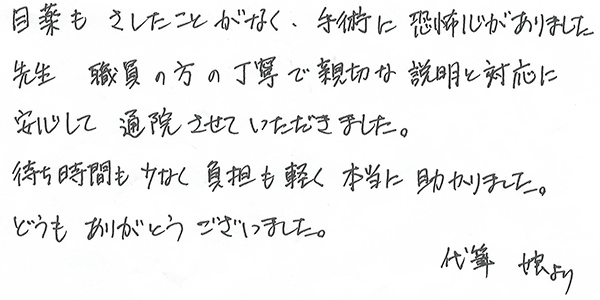 目薬も さしたことがなく、手術に 恐怖心がありました
先生 職員の方の丁寧で親切な 説明と対応に
安心して 通院させていただきました。
待ち時間も少なく 負担も軽く 本当に 助かりました。
どうも ありがとう ございました。
代筆 娘より